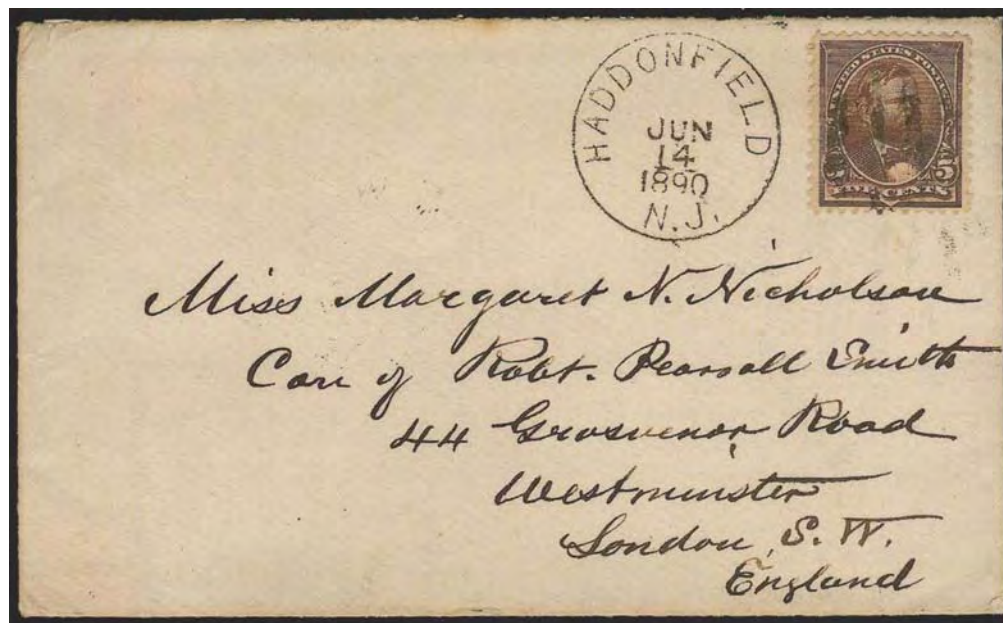 HADDONFIELD
JUN
14
1890
N.J.
UNITED STATES POSTAGE
5
FIVE CENTS
Miss Margaret N. Nicholson
Care of Robt. Pearsall Smith
44 Grosvenor Road
Westminster
London, S. W.
England